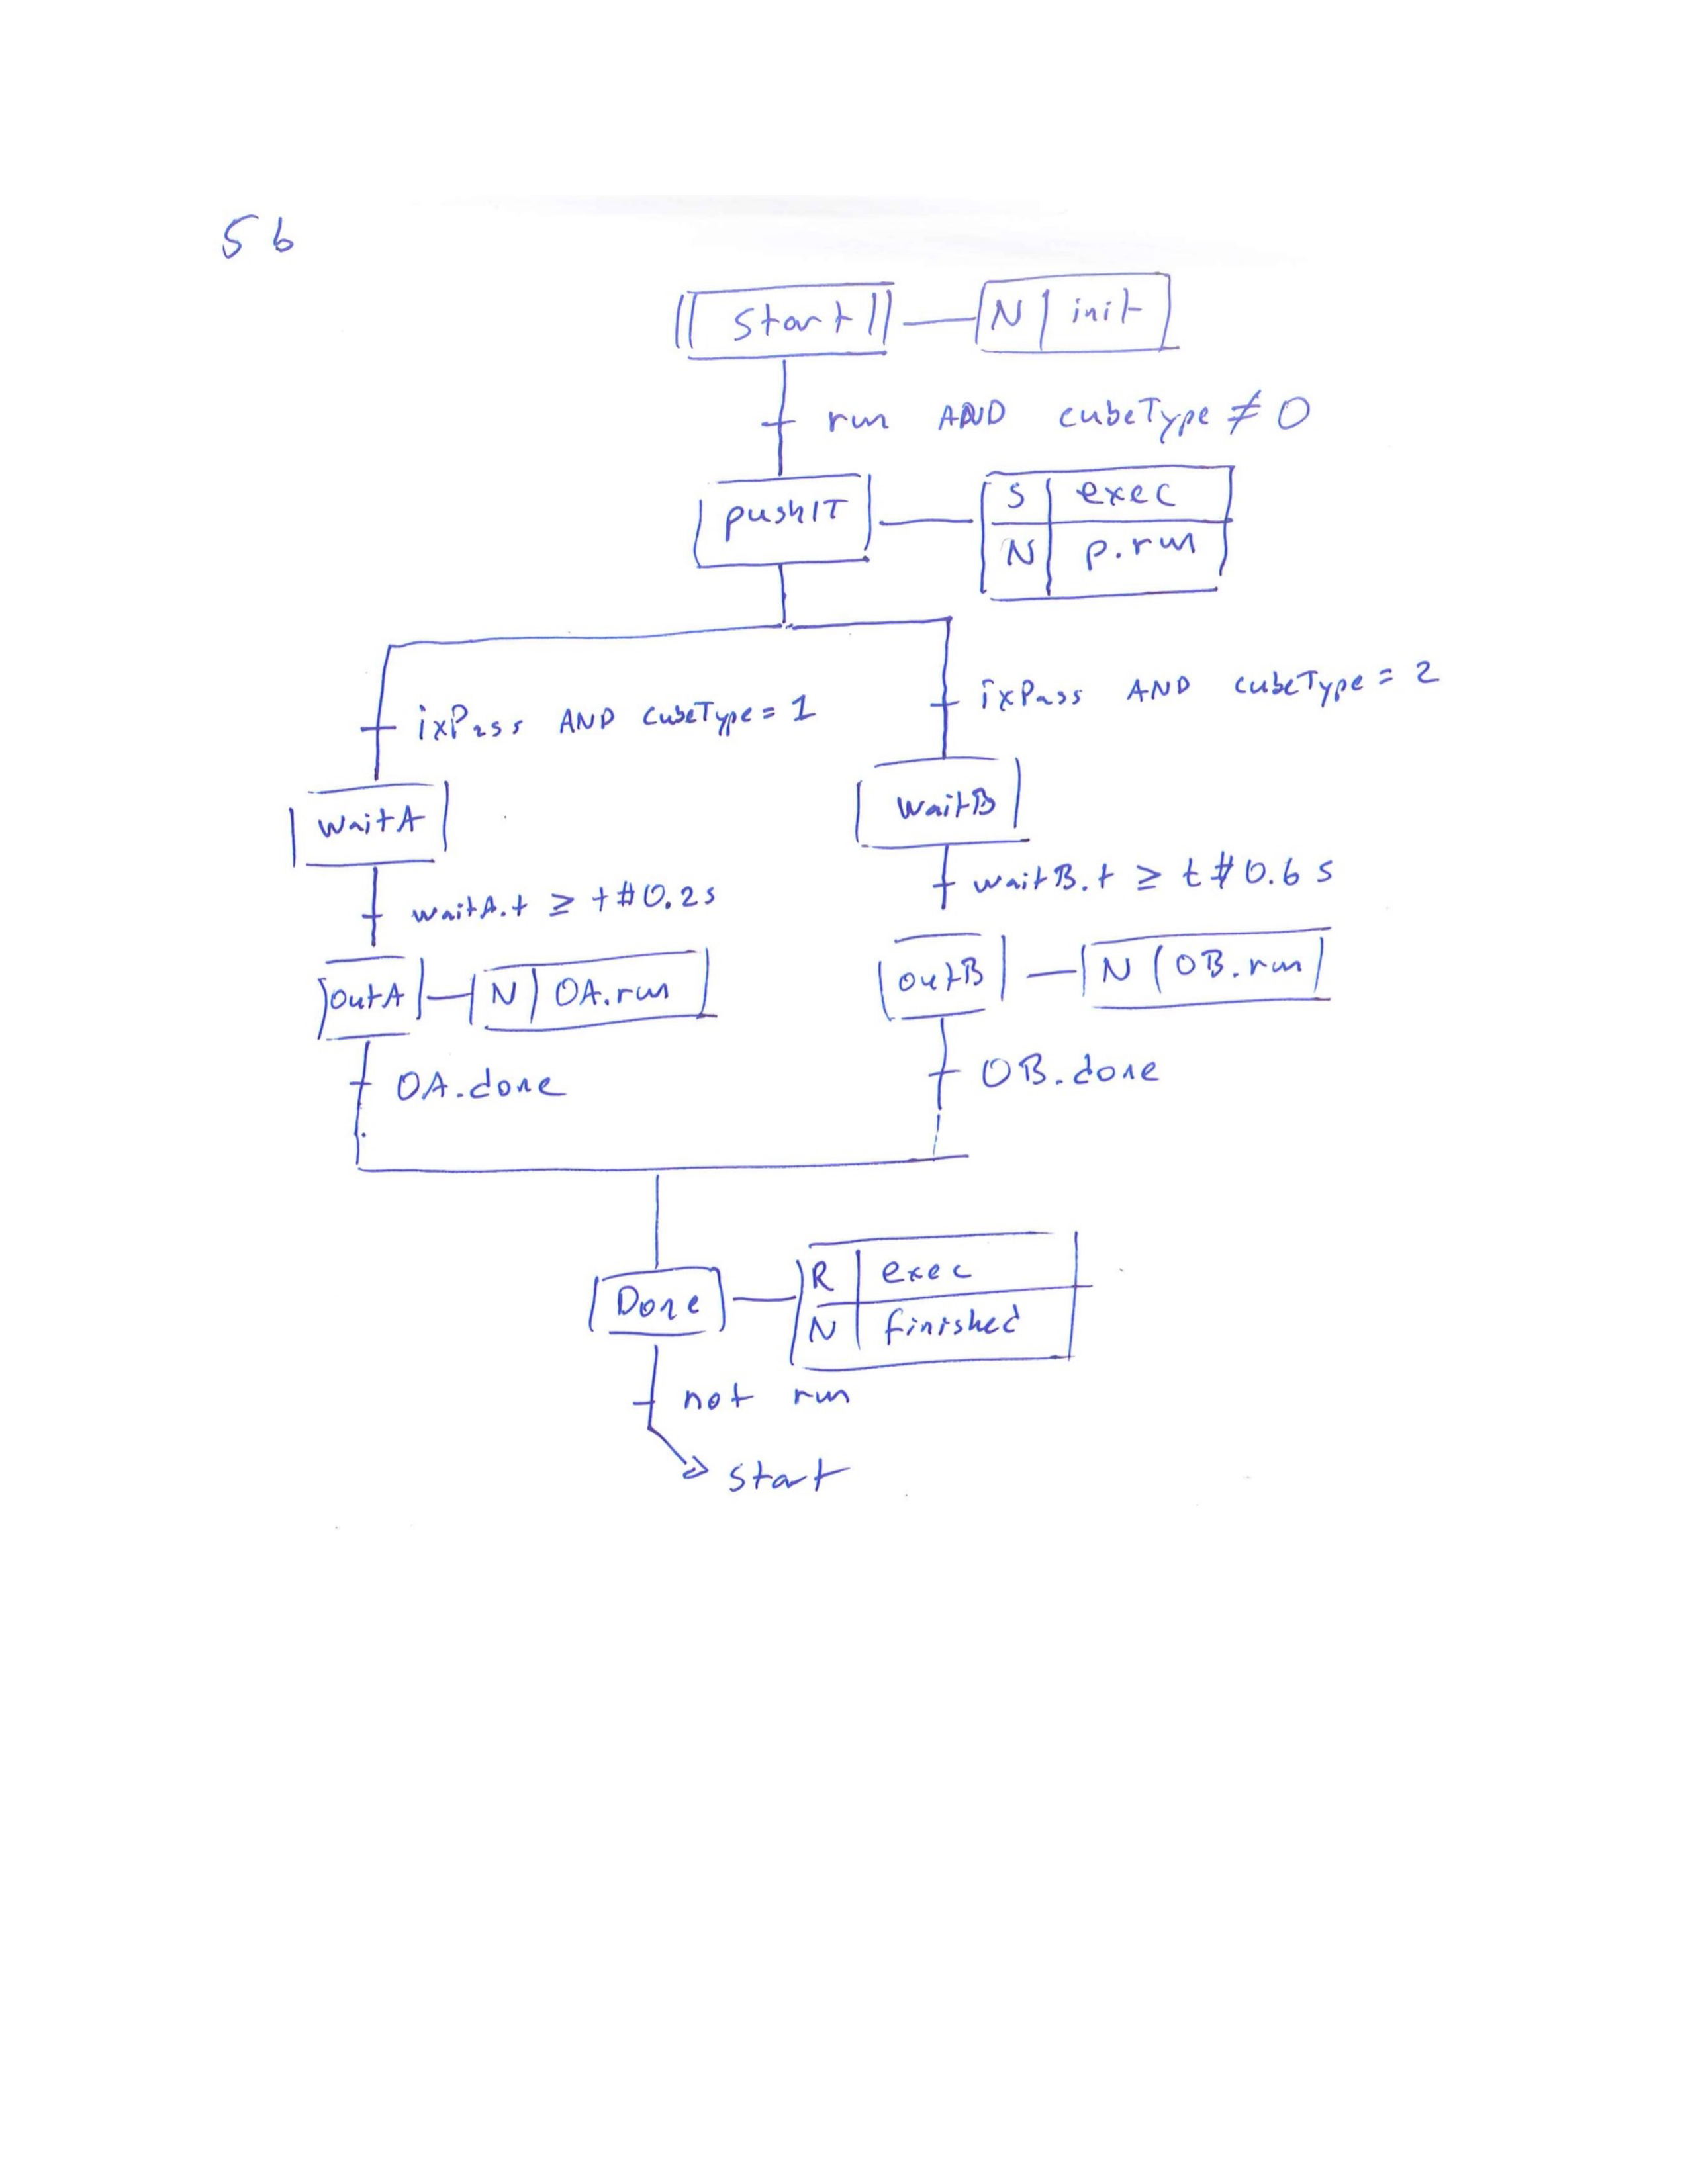 5b
Start N init
run AND cubeType ≠ 0
pushIT S exec
N p.run
ixPass AND cubeType = 1
ixPass AND cubeType = 2
waitA
waitB
waitA.t ≥ t#0.2s
waitB.t ≥ t#0.6s
outA N OA.run
outB N OB.run
OA.done
OB.done
Done R exec
N finished
not run
start